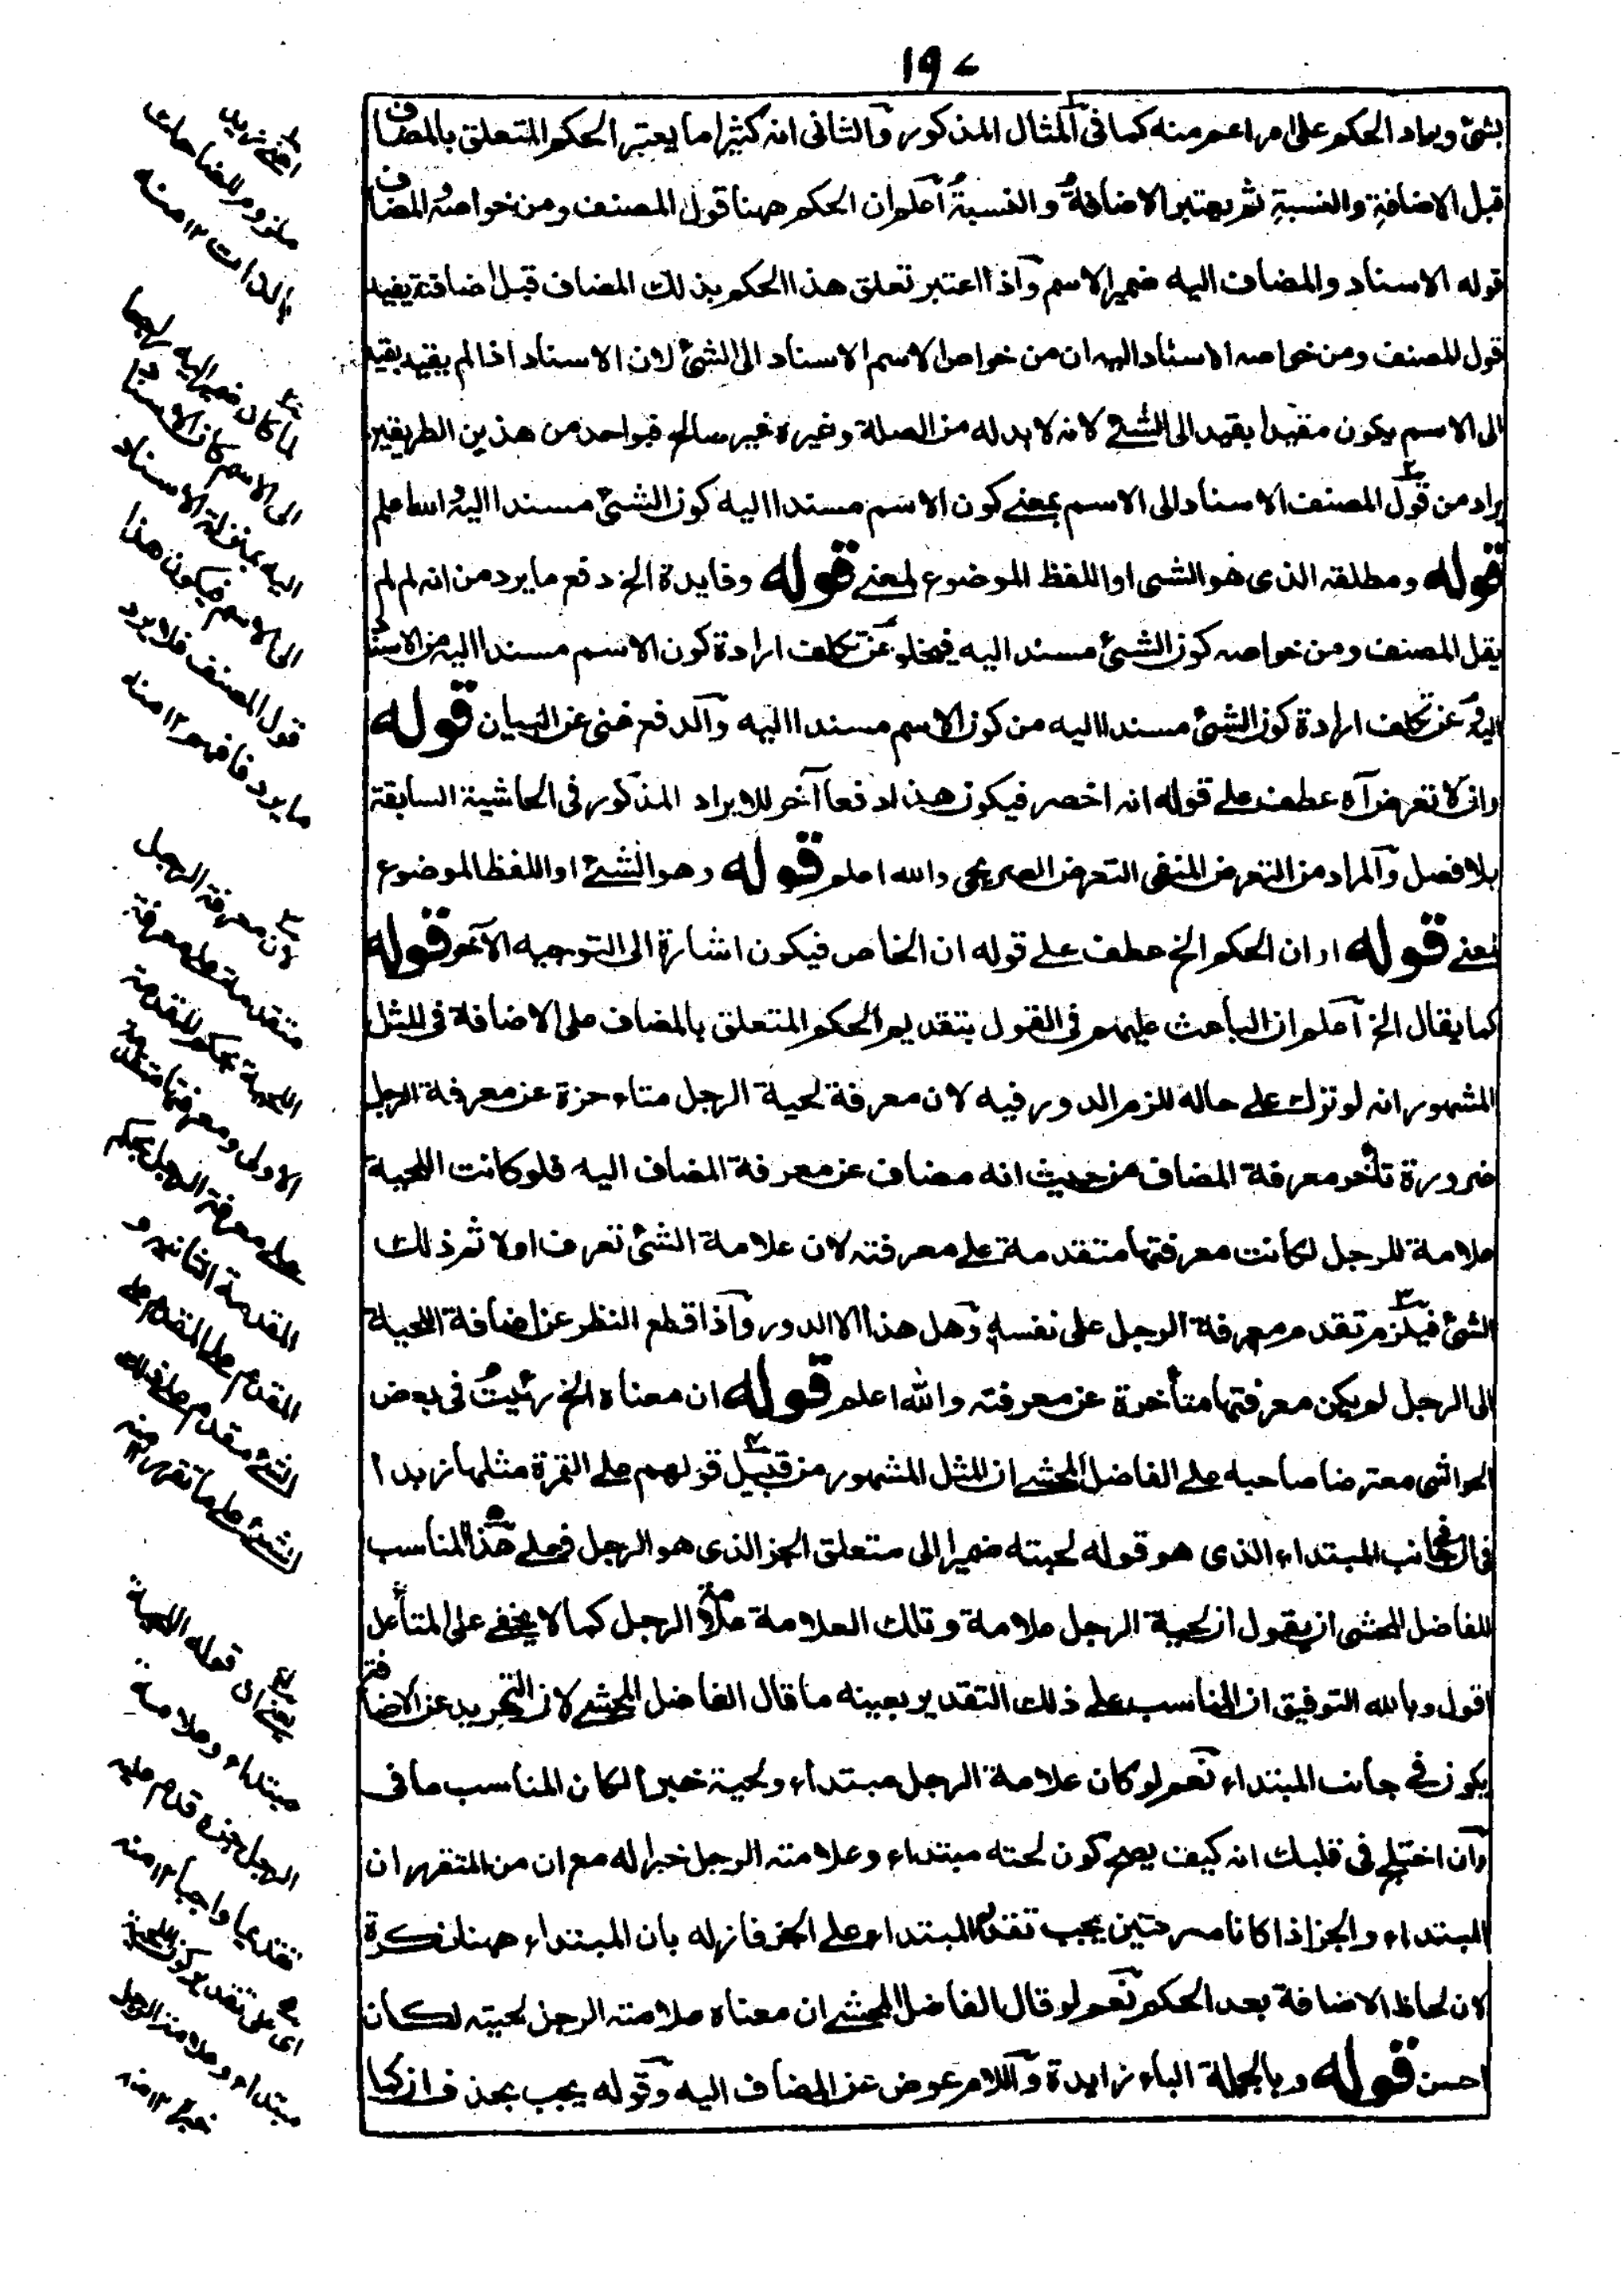 ١٩٧
بشئ ويراد الحكم على امر اعم منه كما فى المثال المذكور والثانى انه كثيرا ما يعتبر الحكم المتعلق بالمضاف
قبل الاضافة والنسبة ثم يعتبر الاضافة والنسبة اعلم ان الحكم ههنا قول المصنف ومن خواصه المضاف
قوله الاسناد والمضاف اليه ضمير الاسم واذا اعتبر تعلق هذا الحكم بذلك المضاف قبل اضافته يفيد
قول المصنف ومن خواصه الاسناد اليه ان من خواص الاسم الاسناد الى الشئ لان الاسناد اذا لم يقيد بقيد
الى الاسم يكون مقيدا بقيد الى الشئ لانه لا بد له من الصلة وغيره غير صالح فبواحد من هذين الطريقين
يراد من قول المصنف الاسناد الى الاسم بمعنى كون الاسم مسندا اليه كون الشئ مسندا اليه والله اعلم
قوله ومطلقه الذى هو الشئ او اللفظ الموضوع لمعنى قوله وفايدة الخ دفع ما يرد من انه لم لم
يقل المصنف ومن خواصه كون الشئ مسند اليه فيخلو عن تكلف ارادة كون الاسم مسندا اليه من الاسناد
اليه وعن تكلف ارادة كون الشئ مسندا اليه من كون الاسم مسندا اليه والدفع غنى عن البيان قوله
وان لا تعرض آه عطف على قوله انه اخصر فيكون هذا دفعا آخر للايراد المذكور فى الحاشية السابقة
بلا فصل والمراد من التعرض المنفى التعرض الصريحى والله اعلم قوله وهو الشئ او اللفظ الموضوع
لمعنى قوله او ان الحكم الخ عطف على قوله ان الخاص فيكون اشارة الى التوجيه الآخر قوله
كما يقال الخ اعلم ان الباعث عليهم فى القول بتقديم الحكم المتعلق بالمضاف على الاضافة فى المثل
المشهور انه لو ترك على حاله للزم الدور فيه لان معرفة لحية الرجل متاخرة عن معرفة الرجل
ضرورة تأخر معرفة المضاف من حيث انه مضاف عن معرفة المضاف اليه فلو كانت اللحية
علامة للرجل لكانت معرفتها متقدمة على معرفته لان علامة الشئ تعرف اولا ثم ذلك
الشئ فيلزم تقدم معرفة الرجل على نفسه وهل هذا الا الدور واذا قطع النظر عن اضافة اللحية
الى الرجل لم يكن معرفتها متأخرة عن معرفته والله اعلم قوله ان معناه الخ رئيت فى بعض
الحواشى معترضا صاحبه على الفاضل المحشى ان المثل المشهور من قبيل قولهم على التمرة مثلها زبدا
فى ان فى جانب المبتداء الذى هو قوله لحيته ضميرا الى متعلق الخبر الذى هو الرجل فعلى هذا المناسب
للفاضل المحشى ان يقول ان لحية الرجل علامة وتلك العلامة علامة الرجل كما لا يخفى على المتأمل
اقول وبالله التوفيق ان المناسب على ذلك التقدير بعينه ما قال الفاضل المحشى لان التجريد عن الاضافة
يكون فى جانب المبتداء نعم لو كان علامة الرجل مبتداء ولحية خبرا لكان المناسب ما فى
وان اختلج فى قلبك انه كيف يصح كون لحته مبتداء وعلامته الرجل خبرا له مع ان من المتقرر ان
المبتداء والخبر اذا كانا معرفتين يجب تقدم المبتداء على الخبر فازله بان المبتداء ههنا نكرة
لان لحاظ الاضافة بعد الحكم نعم لو قال الفاضل المحشى ان معناه علامته الرجل لحيته لكان
احسن قوله وبالجملة الباء زايدة واللام عوض عن المضاف اليه وقوله يجب بحذف ان كما
اعنى زيد
ملزوم للضاحك
بالذات ١٢ منه
لما كان ضمير اليه راجعا
الى الاسم كان الاسناد
اليه بمنزلة الاسناد
الى الاسم فيكون هذا
قول المصنف فلا يرد
ما يرد فافهم ١٢ منه
لان معرفة الرجل
متقدمة على معرفة
اللحية بحكم المقدمة
الاولى ومعرفتها متقدمة
على معرفة الرجل بحكم
المقدمة الثانية و
المقدم على المقدم على
الشئ مقدم على ذلك
الشئ على ما تقرر ١٢ منه
يعنى ان قوله اللحية
مبتداء وعلامة
الرجل خبره قدم عليه
تقديما واجبا ١٢ منه
اى على تقدير كون اللحية
مبتداء وعلامة الرجل
خبرا ١٢ منه